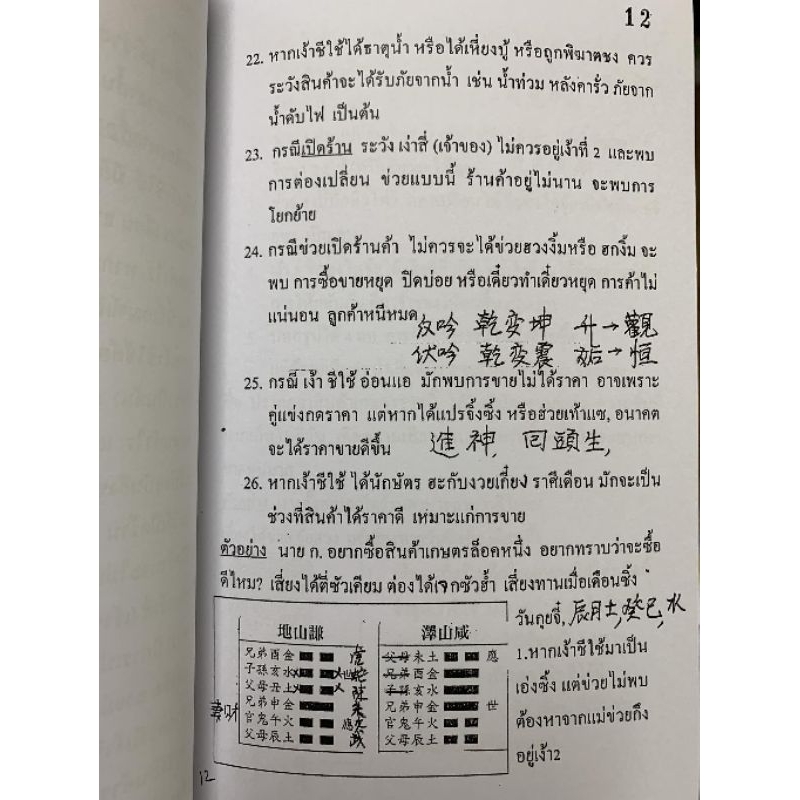 12
22. หากเง้าชีใช้ได้ธาตุน้ำ หรือได้เหี่ยงบู้ หรือถูกพิฆาตชง ควร
ระวังสินค้าจะได้รับภัยจากน้ำ เช่น น้ำท่วม หลังคารั่ว ภัยจาก
น้ำดับไฟ เป็นต้น
23. กรณีเปิดร้าน ระวัง เง่าสี่ (เจ้าของ) ไม่ควรอยู่เง้าที่ 2 และพบ
การต่องเปลี่ยน ช่วยแบบนี้ ร้านค้าอยู่ไม่นาน จะพบการ
โยกย้าย
24. กรณีช่วยเปิดร้านค้า ไม่ควรจะได้ช่วยฮวงงิ้มหรือ ฮกงิ้ม จะ
พบ การซื้อขายหยุด ปิดบ่อย หรือเดี๋ยวทำเดี๋ยวหยุด การค้าไม่
แน่นอน ลูกค้าหนีหมด
反吟 乾变坤 升→觀
伏吟 乾変震 姤→恒
25. กรณี เง้า ชีใช้ อ่อนแอ มักพบการขายไม่ได้ราคา อาจเพราะ
คู่แข่งกดราคา แต่หากได้แปรจิ้งซิ้ง หรือฮ่วยเท้าแซ, อนาคต
จะได้ราคาขายดีขึ้น 進神, 回頭生,
26. หากเง้าชีใช้ ได้นักษัตร ฮะกับงวยเกี่ยง ราศีเดือน มักจะเป็น
ช่วงที่สินค้าได้ราคาดี เหมาะแก่การขาย
ตัวอย่าง นาย ก. อยากซื้อสินค้าเกษตรล็อคหนึ่ง อยากทราบว่าจะซื้อ
ดีไหม? เสี่ยงได้ตี่ซัวเคียม ต่องได้เจกซัวฮ้ำ เสี่ยงทานเมื่อเดือนซิ้ง
วันกุยจี๋, 辰月土,癸巳,水
1.หากเง้าชีใช้มาเป็น
เอ่งซิ้ง แต่ช่วยไม่พบ
ต้องหาจากแม่ช่วยถึง
อยู่เง้า2
地山謙
兄弟酉金 虎
子孫亥水 世 蛇
父母丑土
兄弟申金 朱
妻财 官鬼午火 應
父母辰土
澤山咸
父母未土 應
兄弟酉金
子孫亥水
兄弟申金 世
官鬼午火
父母辰土
12